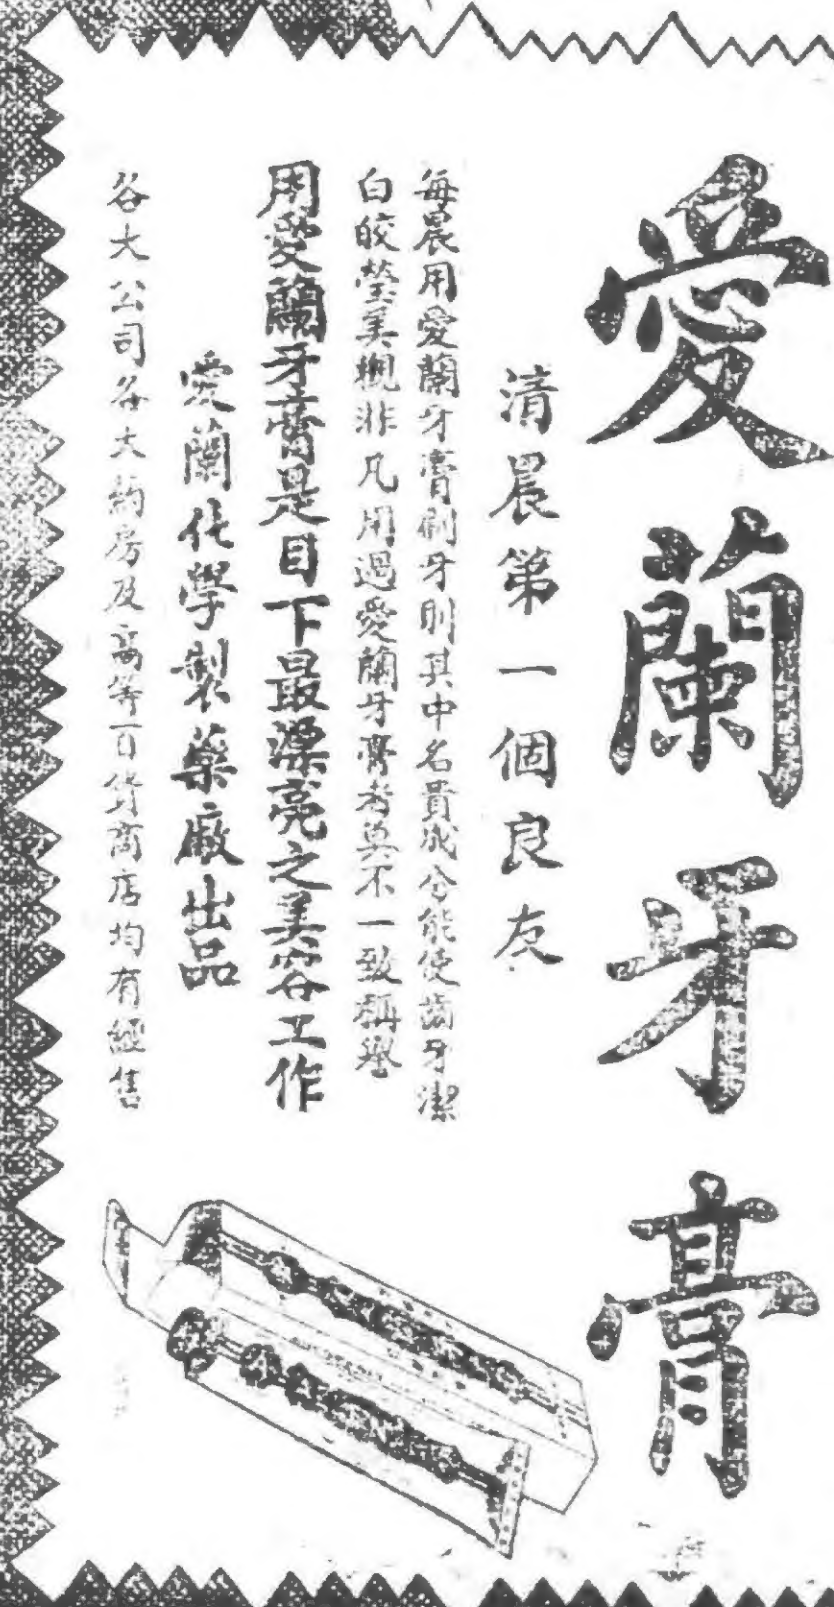 愛蘭牙膏
清晨第一個良友
每晨用愛蘭牙膏刷牙則其中名貴成分能使齒牙潔
白皎瑩美觀非凡用過愛蘭牙膏者莫不一致稱譽
用愛蘭牙膏是目下最漂亮之美容工作
愛蘭化學製藥廠出品
各大公司各大葯房及高等百貨商店均有經售